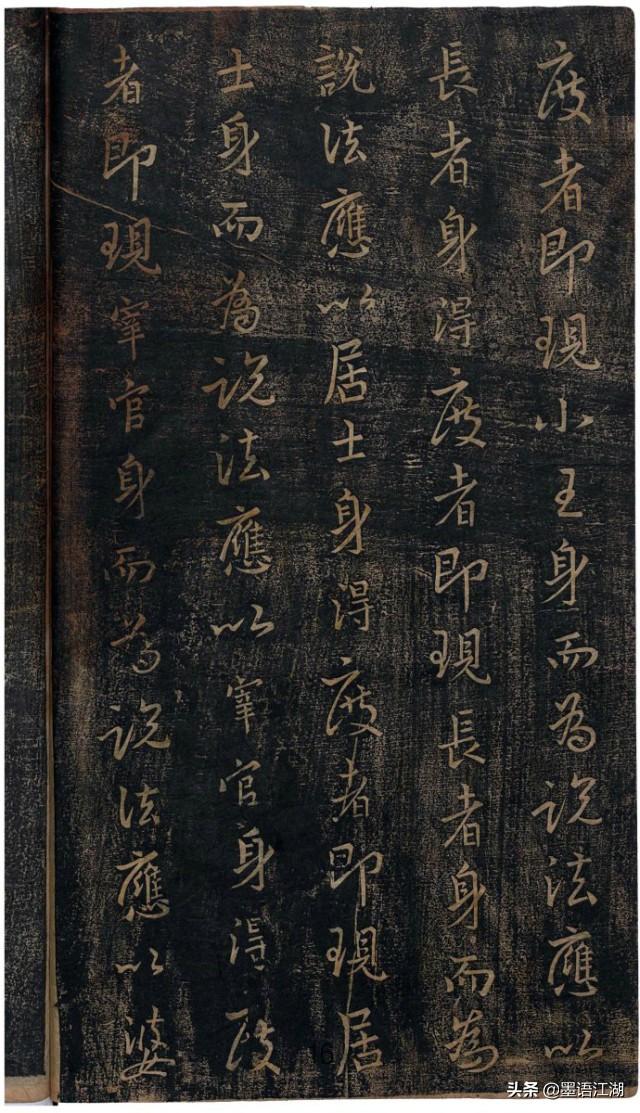 度者即現小王身而為說法應以
長者身得度者即現長者身而為
說法應以居士身得度者即現居
士身而為說法應以宰官身得度
者即現宰官身而為說法應以婆
16
头条 @墨语江湖